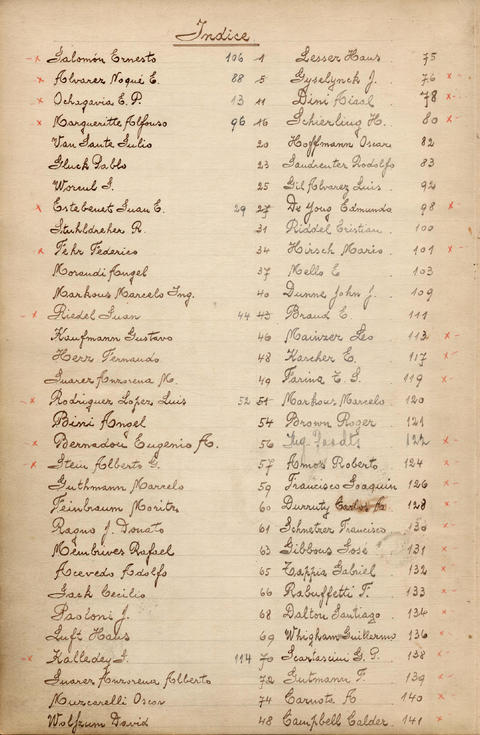 Indice
Salomón Ernesto 106 1
Alvarez Noqué E. 88 5
Ochagavia E. P. 13 11
Margueritte Alfonso 96 16
Van Sante Julio 20
Gluck Pablo 23
Worcul I. 25
Estebenet Juan E. 29 27
Stuhldreher R. 31
Fehr Federico 34
Morandi Angel 37
Markous Marcelo Ing. 40
Riedel Juan 44 43
Kaufmann Gustavo 46
Herr Fernando 48
Suarez Anzorena M. 49
Rodriguez Lopez Luis 52 51
Bini Angel 54
Bernadou Eugenio A. 56
Stein Alberto G. 57
Guthmann Marcelo 59
Feinbaum Moritz 60
Ragno J. Donato 61
Membrives Rafael 63
Acevedo Adolfo 65
Jack Cecilio 66
Paoloni J. 68
Luft Hans 69
Kalladey I. 114 70
Suarez Anzorena Alberto 72
Muzcarelli Oscar 74
Wolfzum David 48
Lesser Hans 75
Gyselynck J. 76
Dini Aisal 78
Schierling H. 80
Hoffmann Oscar 82
Saudreuter Rodolfo 83
Gil Alvarez Luis 92
De Jong Edmundo 98
Riddel Cristian 100
Hirsch Mario 101
Mello E 103
Dunne John J. 109
Braud E. 111
Mainzer Leo 113
Karcher E. 117
Farina T. S. 119
Markous Marcelo 120
Brown Roger 121
Ing. 122
Amos Roberto 124
Francisco Joaquin 126
Durruty Carlos A 128
Schnetzer Francisco 130
Gibbons José 131
Zappia Gabriel 132
Rabuffetti F. 133
Dalton Santiago 134
Whigham Guillermo 136
Scartascini G. P. 138
Gutmann F. 139
Carnote A 140
Campbell Calder 141